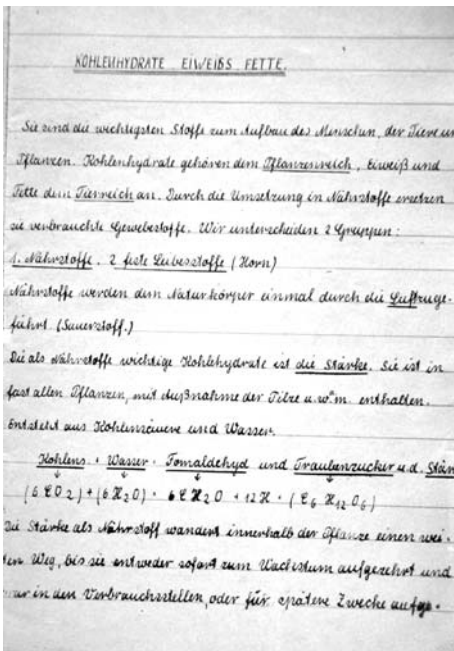 KOHLENHYDRATE EIWEIßS FETTE.
Sie sind die wichtigsten Stoffe zum Aufbau des Menschen, der Tiere un
Pflanzen. Kohlenhydrate gehören dem Pflanzenreich, Eiweiß und
Fette dem Tierreich an. Durch die Umsetzung in Nährstoffe ersetzen
sie verbrauchte Gewebestoffe. Wir unterscheiden 2 Gruppen:
1. Nährstoffe. 2 feste Leibesstoffe (Horn)
Nährstoffe werden dem Naturkörper einmal durch die Luftzuge-
führt (Sauerstoff.)
Die als Nährstoffe wichtige Kohlehydrate ist die Stärke. Sie ist in
fast allen Pflanzen, mit Außnahme der Pilze u.w.m. enthalten.
Entsteht aus Kohlensäuere und Wasser.
Kohlens. + Wasser = Fomaldehyd und Traubenzucker u.d. Stär
(6 CO2) + (6 H2O) = 6 CH2O + 12H = (C6 H12 O6)
Die Stärke als Nährstoff wandert innerhalb der Pflanze einen wei-
ten Weg, bis sie entweder sofort zum Wachstum aufgezehrt und
in den Verbrauchsstellen, oder für spätere Zwecke aufge-